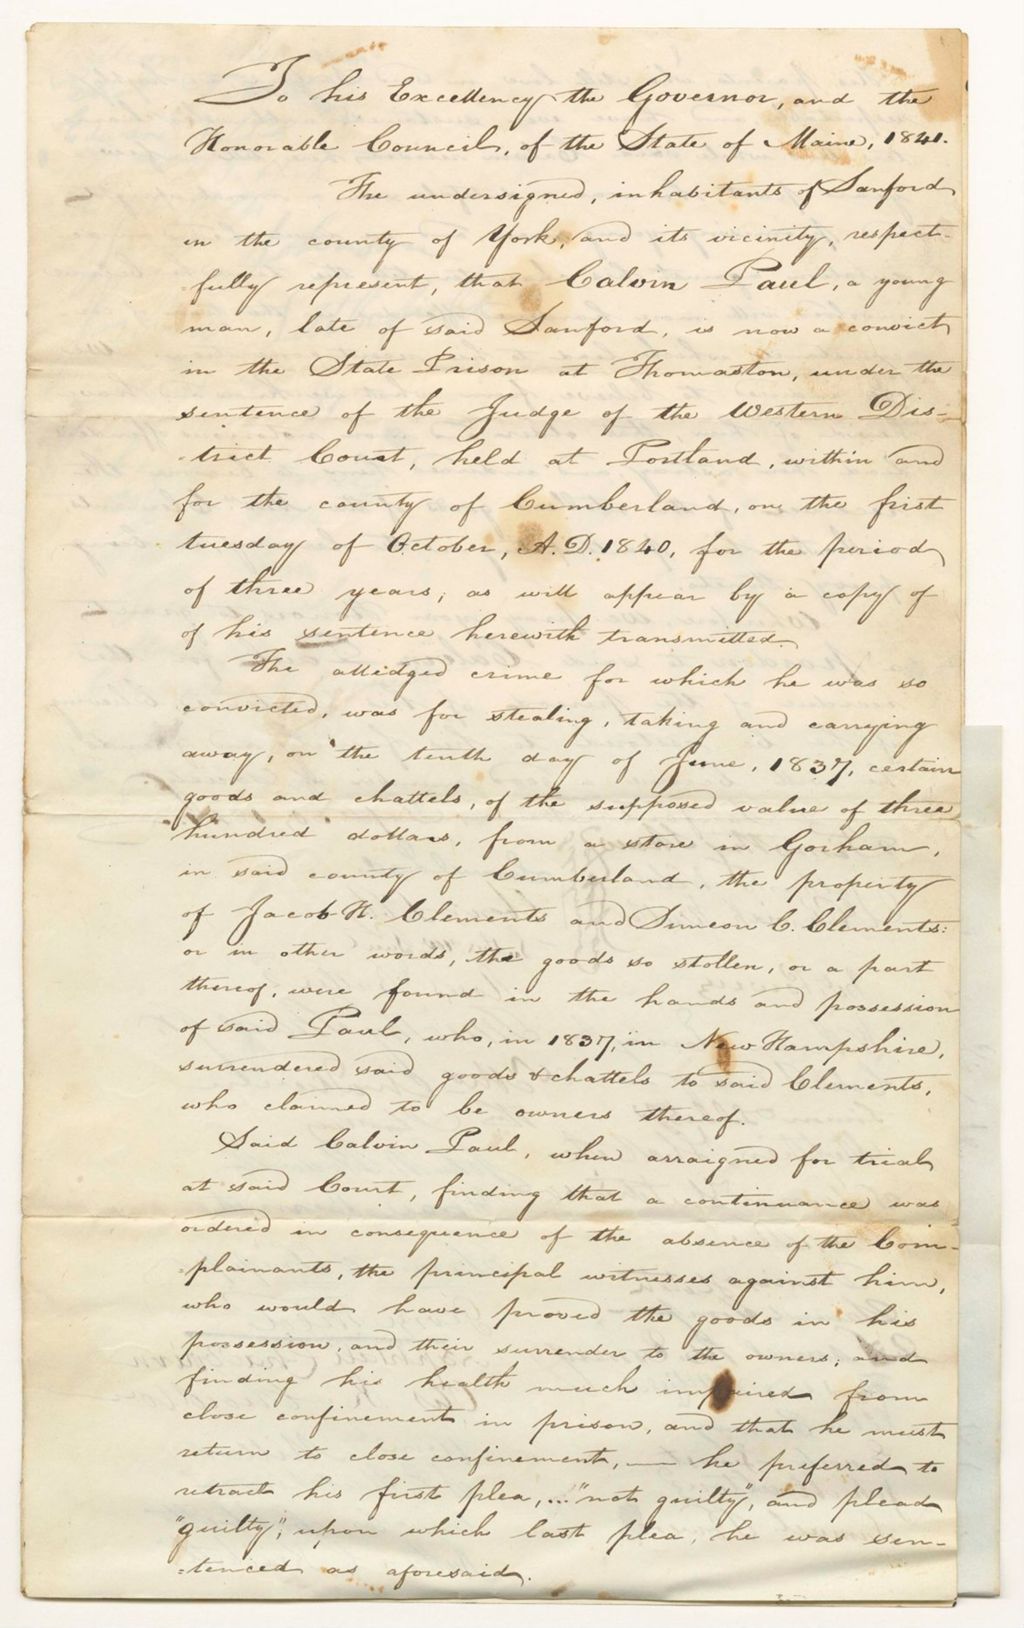 To his Excellency the Governor, and the
Honorable Council, of the State of Maine, 1841.
The undersigned, inhabitants of Sanford
in the county of York, and its vicinity, respect-
-fully represent, that Calvin Paul, a young
man, late of said Sanford, is now a convict
in the State Prison at Thomaston, under the
sentence of the Judge of the Western Dis-
-trict Court, held at Portland, within and
for the county of Cumberland, on the first
tuesday of October, A.D. 1840, for the period
of three years, as will appear by a copy of
of his sentence herewith transmitted.
The alledged crime for which he was so
convicted, was for stealing, taking and carrying
away, on the tenth day of June, 1837, certain
goods and chattels, of the supposed value of three
hundred dollars, from a store in Gorham,
in said county of Cumberland, the property
of Jacob H. Clements and Simeon C. Clements:
or in other words, the goods so stollen, or a part
thereof, were found in the hands and possession
of said Paul, who, in 1837, in New Hampshire,
surrendered said goods & chattels to said Clements,
who claimed to be owners thereof.
Said Calvin Paul, when arraigned for trial
at said Court, finding that a continuance was
ordered in consequence of the absence of the Com-
-plainants, the principal witnesses against him,
who would have proved the goods in his
possession, and their surrender to the owners; and
finding his health much impaired from
close confinement in prison, and that he must
return to close confinement, — he preferred to
retract his first plea, ... "not guilty", and plead
"guilty"; upon which last plea, he was sen-
-tenced as aforesaid.